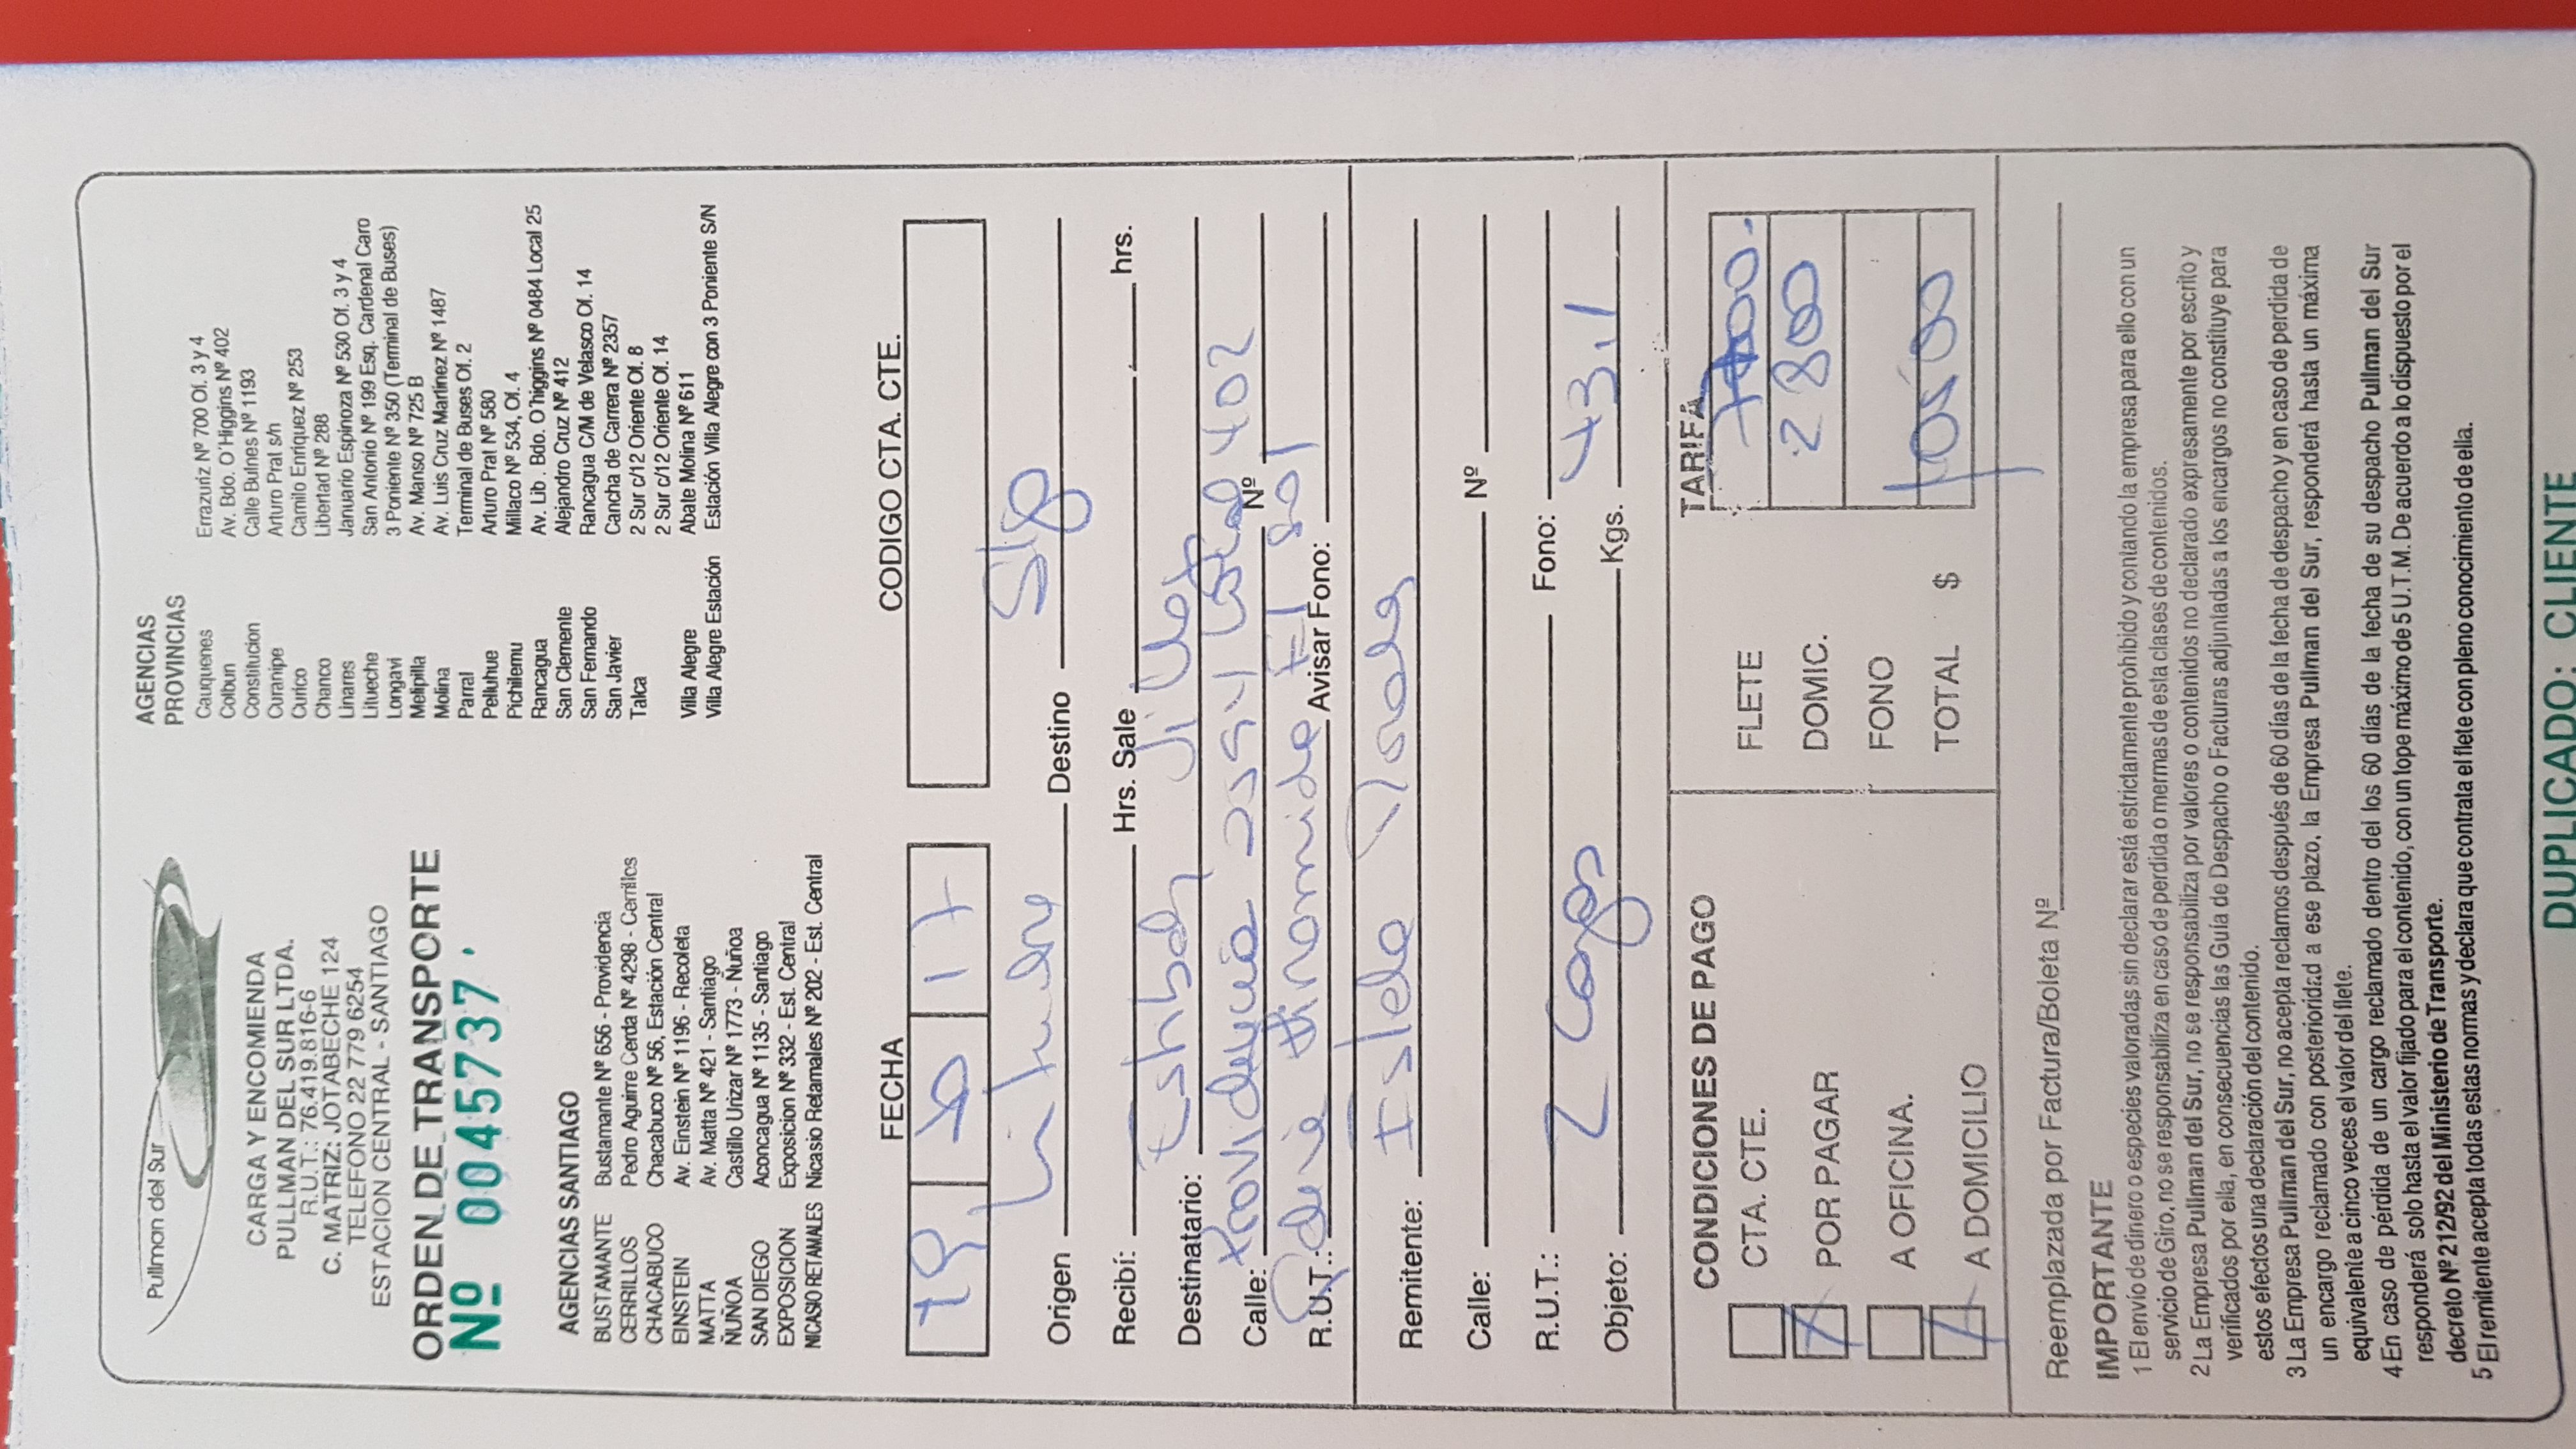 Pullman del Sur
CARGA Y ENCOMIENDA
PULLMAN DEL SUR LTDA.
R.U.T.: 76.419.816-6
C. MATRIZ: JOTABECHE 124
TELEFONO 22 779 6254
ESTACION CENTRAL - SANTIAGO
ORDEN DE TRANSPORTE
Nº 0045737
AGENCIAS SANTIAGO
BUSTAMANTE Bustamante Nº 656 - Providencia
CERRILLOS Pedro Aguirre Cerda Nº 4298 - Cerrillos
CHACABUCO Chacabuco Nº 56, Estación Central
EINSTEIN Av. Einstein Nº 1196 - Recoleta
MATTA Av. Matta Nº 421 - Santiago
ÑUÑOA Castillo Urizar Nº 1773 - Nuñoa
SAN DIEGO Aconcagua Nº 1135 - Santiago
EXPOSICION Exposicion Nº 332 - Est. Central
NICASIO RETAMALES Nicasio Retamales Nº 202 - Est. Central
AGENCIAS
PROVINCIAS
Cauquenes Errazuriz Nº 700 Of. 3 y 4
Colbun Av. Bdo. O'Higgins Nº 402
Constitucion Calle Bulnes Nº 1193
Curanipe Arturo Prat s/n
Curico Camilo Enriquez Nº 253
Chanco Libertad Nº 288
Linares Januario Espinoza Nº 530 Of. 3 y 4
Litueche San Antonio Nº 199 Esq. Cardenal Caro
Longavi 3 Poniente Nº 350 (Terminal de Buses)
Melipilla Av. Manso Nº 725 B
Molina Av. Luis Cruz Martínez Nº 1487
Parral Terminal de Buses Of. 2
Pelluhue Arturo Prat Nº 580
Pichilemu Millaco Nº 534, Of. 4
Rancagua Av. Lib . Bdo. O'higgins Nº 0484 Local 25
San Clemente Alejandro Cruz Nº 412
San Fernando Rancagua C/M de Velasco Of. 14
San Javier Cancha de Carrera Nº 2357
Talca 2 Sur c/12 Oriente Of. 8
2 Sur c/12 Oriente Of. 14
Villa Alegre Abate Molina Nº 611
Villa Alegre Estación Estación Villa Alegre con 3 Poniente S/N
FECHA CODIGO CTA. CTE.
17
Origen Destino Stgo
Recibí: Hrs. Sale hrs.
Destinatario: Esteban
Calle: Providencia 2594 Local 402 Nº
R.U.T.: El Sol Avisar Fono:
Remitente: Isleda
Calle: Nº
R.U.T.: Fono:
Objeto: 2 Cajas Kgs. 43,1
CONDICIONES DE PAGO
CTA. CTE.
POR PAGAR
A OFICINA.
A DOMICILIO
TARIFA
FLETE
DOMIC. 2800
FONO
TOTAL $
Reemplazada por Factura/Boleta Nº
IMPORTANTE
1 El envío de dinero o especies valoradas sin declarar está estrictamente prohibido y contando la empresa para ello con un
servicio de Giro, no se responsabiliza en caso de perdida o mermas de esta clases de contenidos.
2 La Empresa Pullman del Sur, no se responsabiliza por valores o contenidos no declarado expresamente por escrito y
verificados por ella, en consecuencias las Guía de Despacho o Facturas adjuntadas a los encargos no constituye para
estos efectos una declaración del contenido.
3 La Empresa Pullman del Sur, no acepta reclamos después de 60 días de la fecha de despacho y en caso de perdida de
un encargo reclamado con posterioridad a ese plazo, la Empresa Pullman del Sur, responderá hasta un máxima
equivalente a cinco veces el valor del flete.
4 En caso de pérdida de un cargo reclamado dentro del los 60 días de la fecha de su despacho Pullman del Sur
responderá solo hasta el valor fijado para el contenido, con un tope máximo de 5 U.T.M. De acuerdo a lo dispuesto por el
decreto Nº 212/92 del Ministerio de Transporte.
5 El remitente acepta todas estas normas y declara que contrata el flete con pleno conocimiento de ella.
DUPLICADO: CLIENTE